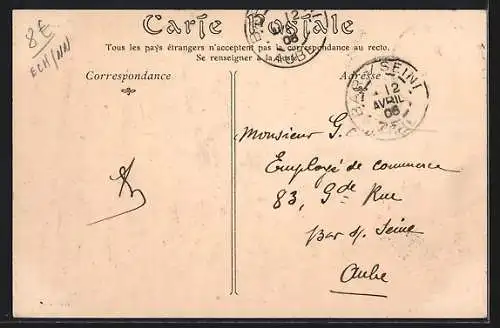 8€
ECH/NN
Carte Postale
Tous les pays étrangers n'acceptent pas la correspondance au recto.
Se renseigner à la Poste
Correspondance
Adresse
BAR S/ SEINE
12
AVRIL
06
12
06
Monsieur G.
Employé de commerce
83, Gde Rue
Bar s/ Seine
Aube